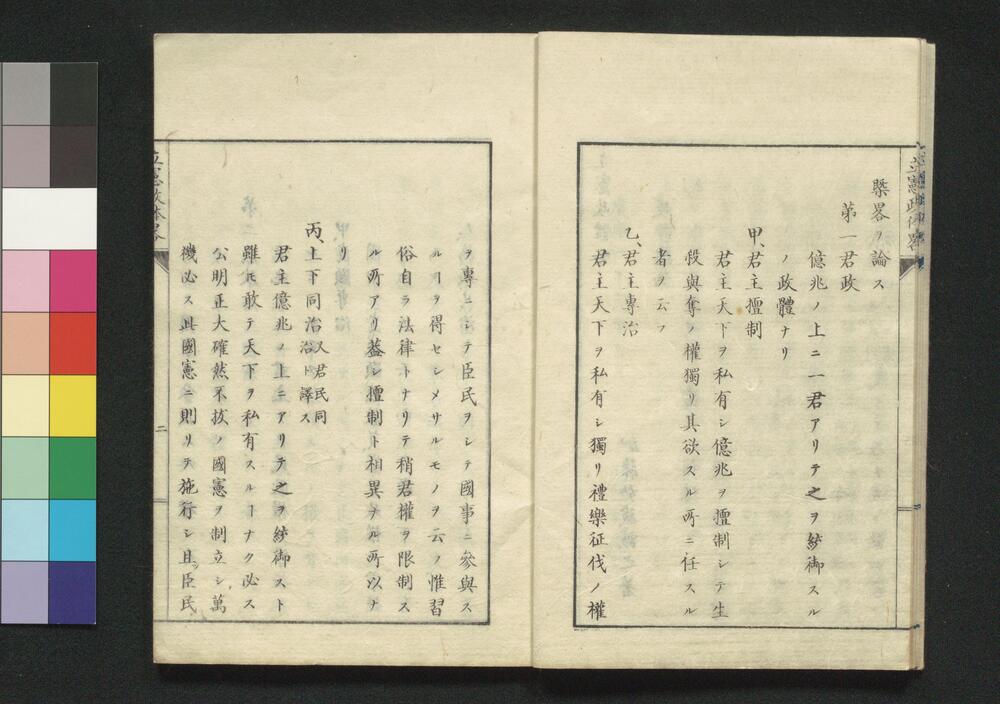 立憲政体畧
槩畧ヲ論ス
第一君政
億兆ノ上ニ一君アリテ之ヲ統御スル
ノ政體ナリ
甲、君主擅制
君主天下ヲ私有シ億兆ヲ擅制シテ生
殺與奪ノ權獨リ其欲スル所ニ任スル
者ヲ云フ
乙、君主專治
君主天下ヲ私有シ獨リ禮樂征伐ノ權
ヲ專ニシテ臣民ヲシテ國事ニ參與ス
ルヿヲ得セシメサルモノヲ云フ惟習
俗自ラ法律トナリテ稍君權ヲ限制ス
ル所アリ蓋シ擅制ト相異ナル所以ナ
リ
丙、上下同治又君民同治ト譯ス
君主億兆ノ上ニアリテ之ヲ統御スト
雖𪜈敢テ天下ヲ私有スルヿナク必ス
公明正大確然不拔ノ國憲ヲ制立シ萬
機必ス此國憲ニ則リテ施行シ且ツ臣民
立憲政体畧
二